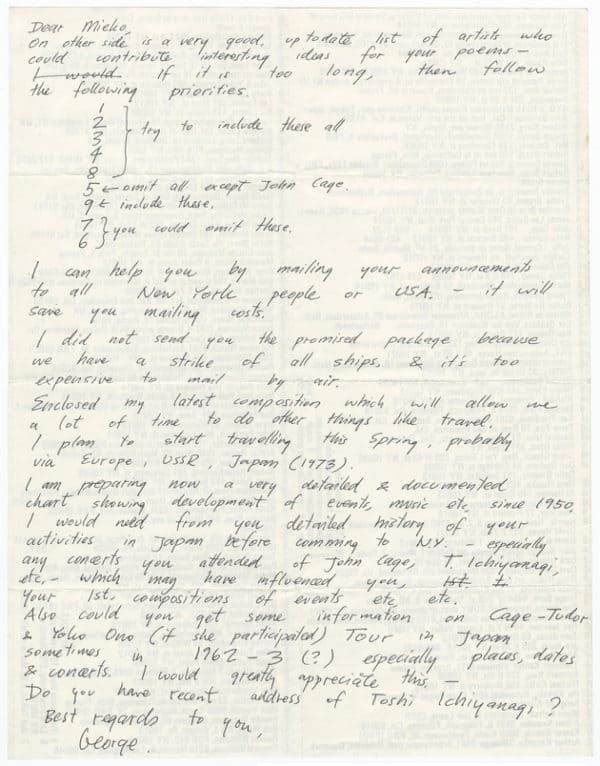 Dear Mieko,
On other side is a very good, up to date list of artists who
could contribute interesting ideas for your poems –
I would If it is too long, then follow
the following priorities.
1
2
3 } try to include these all
4
8
5 ← omit all except John Cage.
9 ← include these.
7 } you could omit these.
6
I can help you by mailing your announcements
to all New York people or USA. – it will
save you mailing costs.
I did not send you the promised package because
we have a strike of all ships, & it's too
expensive to mail by air.
Enclosed my latest composition which will allow me
a lot of time to do other things like travel.
I plan to start travelling this Spring, probably
via Europe, USSR, Japan (1973).
I am preparing now a very detailed & documented
chart showing development of events, music etc. since 1950.
I would need from you detailed history of your
activities in Japan before comming to N.Y. – especially
any concerts you attended of John Cage, T. Ichiyanagi,
etc, – which may have influenced you, 1st.
your 1st. compositions of events etc etc.
Also could you get some information on Cage-Tudor
& Yoko Ono (if she participated) Tour in Japan
sometimes in 1962–3 (?) especially places, dates
& concerts. I would greatly appreciate this. –
Do you have recent address of Toshi Ichiyanagi ?
Best regards to you,
George.